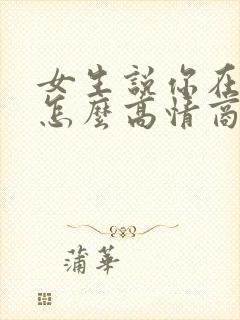 女生說你在
怎麼高情商
蒲華